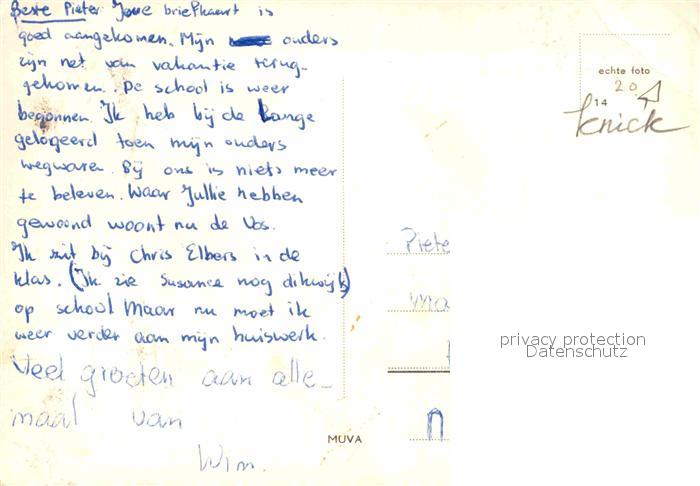 Beste Pieter Jouw briefkaart is
goed aangekomen. Mijn ouders
zijn net van vakantie terug-
gekomen. De school is weer
begonnen. Ik heb bij de Lange
gelogeerd toen mijn ouders
wegwaren. Bij ons is niets meer
te beleven. Waar Jullie hebben
gewoond woont nu de Vos.
Ik zit bij Chris Elbers in de
klas. (Ik zie Susanne nog dikwijls)
op school Maar nu moet ik
weer verder aan mijn huiswerk.
Veel groeten aan alle-
maal van
Wim.
MUVA
echte foto
20
14
knick
Piete
n
privacy protection
Datenschutz